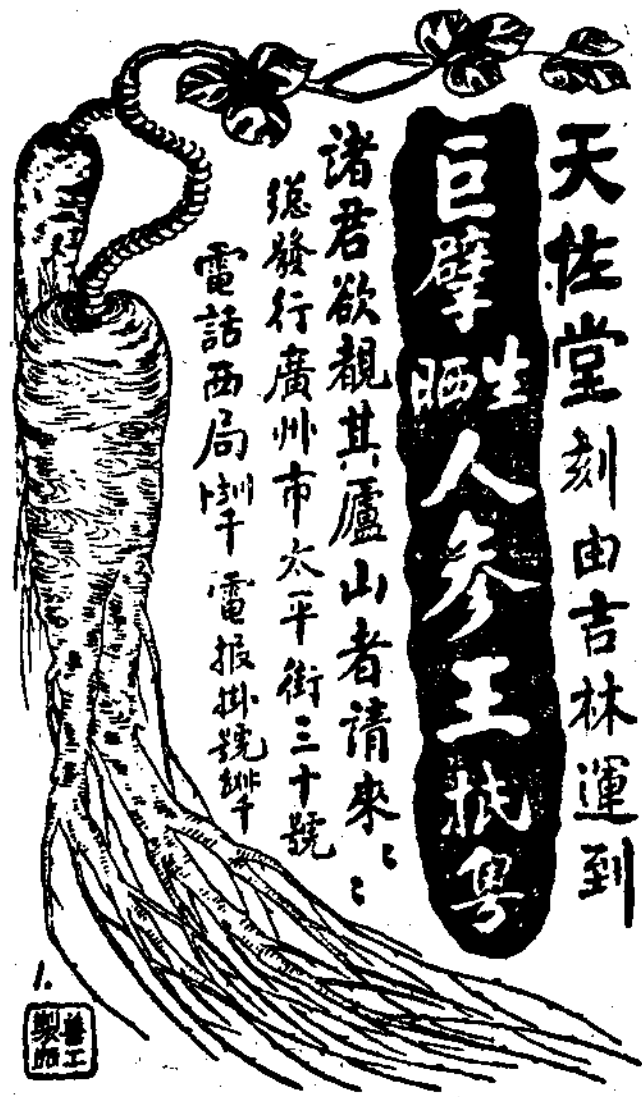 天性堂刻由吉林運到
巨擘生晒人參王抵粵
諸君欲覩其廬山者請來〻〻
總發行廣州市太平街三十號
電話西局
電報掛號
1.